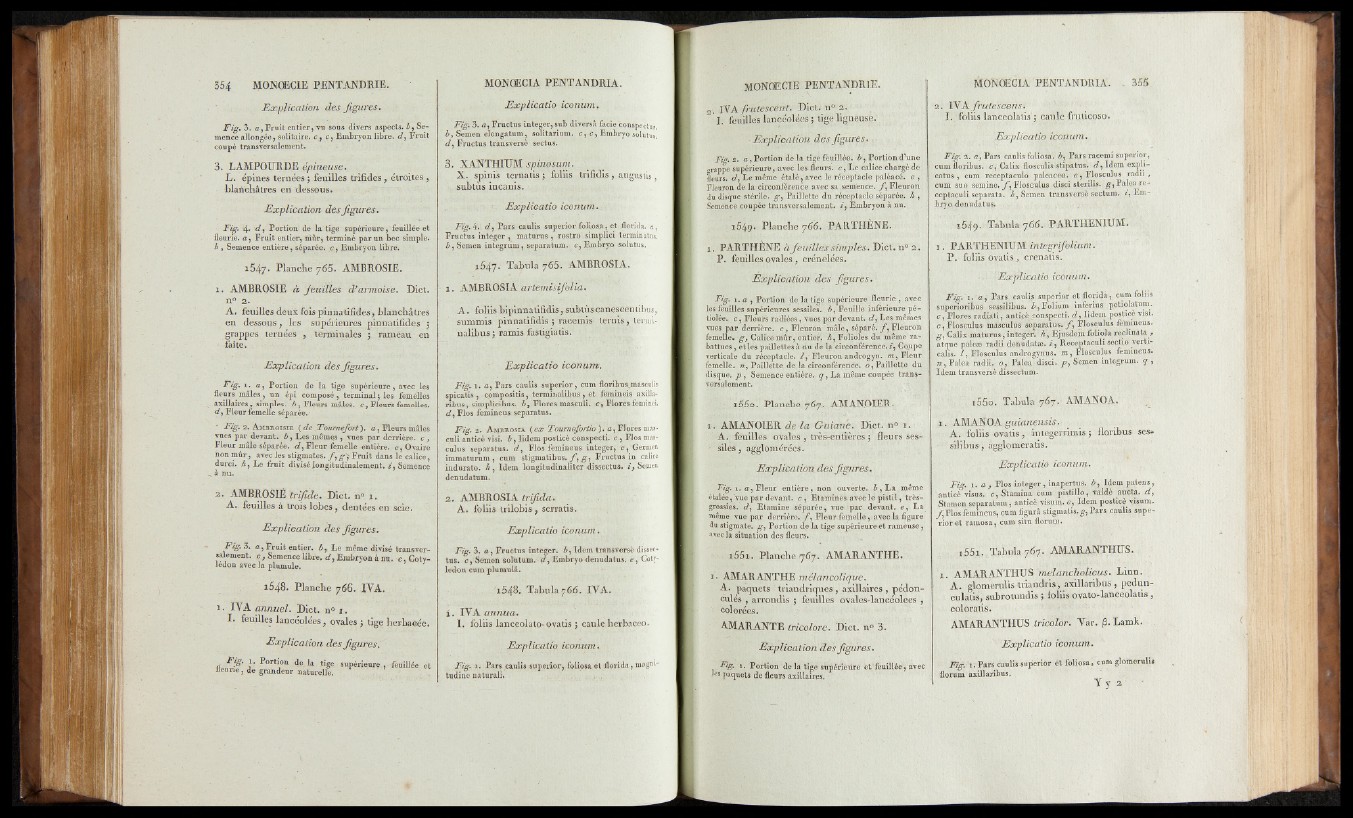 354 MONŒCIE PENTANDRIE.
Explication des figures.
Fig. 3. a, Fruit entier, vu sous divers aspects. b, Se-
mence allongée, solitaire. c, c, Embryon libre. d, Fruit
coupé transversalement.
3. LAMPOURDE épineuse.
L. épines ternées ; feuilles trifides , étroites ,
blanchâtres en dessous.
Explication des figures.
Fig. 4. d, Portion de la tige supérieure, feuillée et
fleurie. a, Fruit entier, mûr, terminé par un bec simple.
b, Semence entière, séparée. c, Embryon libre.
1547. Planche 765. AMBROSIE.
1. AMBROSIE à feuilles d'armoise. Dict.
n° 2.
A. feuilles deux fois pinnatifides, blanchâtres
en dessous, les supérieures pinnatifides ;
grappes ternées , terminales ; rameau en
faîte.
Explication des figures.
Fig. 1. a, Portion de la tige supérieure, avec les
fleurs mâles, un épi composé, terminal ; les femelles
axillaires, simples. b, Fleurs mâles. c, Fleurs femelles.
d, Fleur femelle séparée.
Fig. 2. AMBROSIE (de Tournefort). a, Fleurs mâles
vues par devant. b, Les mêmes, vues par derrière. c,
Fleur mâle séparée. d, Fleur femelle entière. e, Ovaire
non mûr, avec les stigmates. f, g, Fruit dans le calice,
durci. h, Le fruit divisé longitudinalement. i, Semence
à nu.
2. AMBROSIE trifide. Dict. n° 1.
A. feuilles à trois lobes, dentées en scie.
Explication des figures.
Fig. 3. a, Fruit entier. b, Le même divisé transver-
salement. c, Semence libre. d, Embryon à nu. e, Coty-
lédon avec la plumule.
1548. Planche 766. IVA.
1. IVA annuel. Dict. n° 1.
I. feuilles lancéolées, ovales ; tige herbacée.
Explication des figures.
Fig. 1. Portion de la tige supérieure, feuillée et
fleurie, de grandeur naturelle.
MONŒCIA PENTANDRIA.
Explicatio iconum.
Fig. 3. a, Fructus integer, sub diversâ facie conspectus.
b, Semen elongatum, solitarium. c, c, Embryo solutus.
d, Fructus transversè sectus.
3. XANTHIUM spinosum.
X. spinis ternatis ; foliis trifidis, angustis ,
subtus incanis.
Explicatio iconum.
Fig. 4. d, Pars caulis superior foliosa, et florida. a,
Fructus integer, maturus, rostro simplici terminatus.
b, Semen integrum, separatum. c, Embryo solutus.
1547. Tabula 765. AMBROSIA.
1. AMBROSIA artemisifolia.
A. foliis bipinnatifidis, subtùs canescentibus,
summis pinnatifidis ; racemis ternis, termi-
nalibus ; ramis fastigiatis.
Explicatio iconum.
Fig. 1. a, Pars caulis superior, cum floribus masculis
spicatis, compositis, terminalibus, et femineis axilla-
ribus, simplicibus. b, Flores masculi. c, Flores feminei.
d, Flos femineus separatus.
Fig. 2. AMBROSIA (ex Tournefortio). a, Flores mas-
culi anticè visi. b, Iidem posticè conspecti. c, Flos mas-
culus separatus. d, Flos femineus integer, e, Germen
immaturum, cum stigmatibus. f, g, Fructus in calice
indurato. h, Idem longitudinaliter dissectus. i, Semen
denudatum.
2. AMBROSIA trifida.
A. foliis trilobis, serratis.
Explicatio iconum.
Fig. 3. a, Fructus integer. b, Idem transversè dissec-
tus. c, Semen solutum. d, Embryo denudatus. e, Coty-
ledon cum plumulâ.
1548. Tabula 766. IVA.
1. IVA annua.
I. foliis lanceolato-ovatis ; caule herbaceo.
Explicatio iconum.
Fig. 1. Pars caulis superior, foliosa et florida, magni-
tudine naturali.
MONŒCIE PENTANDRIE.
2. IVA frutescent. Dict. n° 2.
I. feuilles lancéolées ; tige ligneuse.
Explication des figures.
Fig. 2. a, Portion de la tige feuillée. b, Portion d'une
grappe supérieure, avec les fleurs. c, Le calice chargé de
fleurs. d, Le même étalé, avec le réceptacle paléacé. e,
Fleuron de la circonférence avec sa semence. f, Fleuron
du disque stérile. g, Paillette du réceptacle séparée. h,
Semence coupée transversalement. i, Embryon à nu.
1549. Planche 766. PARTHÈNE.
1. PARTHÈNE à feuilles simples. Dict. n° 2.
P. feuilles ovales, crénelées.
Explication des figures.
Fig. 1. a, Portion de la tige supérieure fleurie, avec
les feuilles supérieures sessiles. b, Feuille inférieure pé-
tiolée. c, Fleurs radiées, vues par devant. d, Les mêmes
vues par derrière. e, Fleuron mâle, séparé. f, Fleuron
femelle. g, Calice mûr, entier. h, Folioles du même ra-
battues, et les paillettes à nu de la circonférence. i, Coupe
verticale du réceptacle. l, Fleuron androgyn. m, Fleur
femelle. n, Paillette de la circonférence. o, Paillette du
disque. p, Semence entière. q, La même coupée trans-
versalement.
1550. Planche 767. AMANOIER.
1. AMANOIER de la Guiane. Dict. n° 1.
A. feuilles ovales, très-entières ; fleurs ses-
siles, agglomérées.
Explication des figures.
Fig. 1. a, Fleur entière, non ouverte. b, La même
étalée, vue par devant. c, Étamines avec le pistil, très-
grossies. d, Étamine séparée, vue par devant. e, La
même vue par derrière. f, Fleur femelle, avec la figure
du stigmate. g, Portion de la tige supérieure et rameuse,
avec la situation des fleurs.
1551. Planche 767. AMARANTHE.
1. AMARANTHE mélancolique.
A. paquets triandriques, axillaires, pédon-
culés, arrondis ; feuilles ovales-lancéolées ,
colorées.
AMARANTE tricolore. Dict. n° 3.
Explication des figures.
Fig. 1. Portion de la tige supérieure et feuillée, avec
les paquets de fleurs axillaires.
MONŒCIA PENTANDRIA. 355
2. IVA frutescens.
I. foliis lanceolatis ; caule fruticoso.
Explicatio iconum.
Fig. 2. a, Pars caulis foliosa. b, Pars racemi superior,
cum floribus. c, Calix flosculis stipatus. d, Idem expli-
catus, cum receptaculo paleaceo. e, Flosculus radii,
cum suo semine. f, Flosculus disci sterilis. g, Palea re-
ceptaculi separata. h, Semen transversè sectum. i, Em-
bryo denudatus.
1549. Tabula 766. PARTHENIUM.
1. PARTHENIUM integrifolium.
P. foliis ovatis, crenatis.
Explicatio iconum.
Fig. 1. a, Pars caulis superior et florida, cum foliis
superioribus sessilibus. b, Folium inferius petiolatum.
c, Flores radiati, anticè conspecti. d, Iidem posticè visi.
e, Flosculus masculus separatus. f, Flosculus femineus.
g, Calix maturus, integer. h, Ejusdem foliola reclinata,
atque paleæ radii denudatæ. i, Receptaculi sectio verti-
calis. l, Flosculus androgynus. m, Flosculus femineus.
n, Palea radii. o, Palea disci. p, Semen integrum. q,
Idem transversè dissectum.
1550. Tabula 767. AMANOA.
1. AMANOA guianensis.
A. foliis ovatis, integerrimis ; floribus ses-
silibus, agglomeratis.
Explicatio iconum.
Fig. 1. a, Flos integer, inapertus. b, Idem patens,
anticè visus. c, Stamina cum pistillo, valdè aucta. d,
Stamen separatum, anticè visum. e, Idem posticè visum.
f, Flos femineus, cum figurâ stigmatis. g, Pars caulis supe-
rior et ramosa, cum situ florum.
1551. Tabula 767. AMARANTHUS.
1. AMARANTHUS melancholicus. Linn.
A. glomerulis triandris, axillaribus, pedun-
culatis, subrotundis ; foliis ovato-lanceolatis,
coloratis.
AMARANTHUS tricolor. Var. β. Lamk.
Explicatio iconum.
Fig. 1. Pars caulis superior et foliosa, cum glomerulis
florum axillaribus.
Y y 2